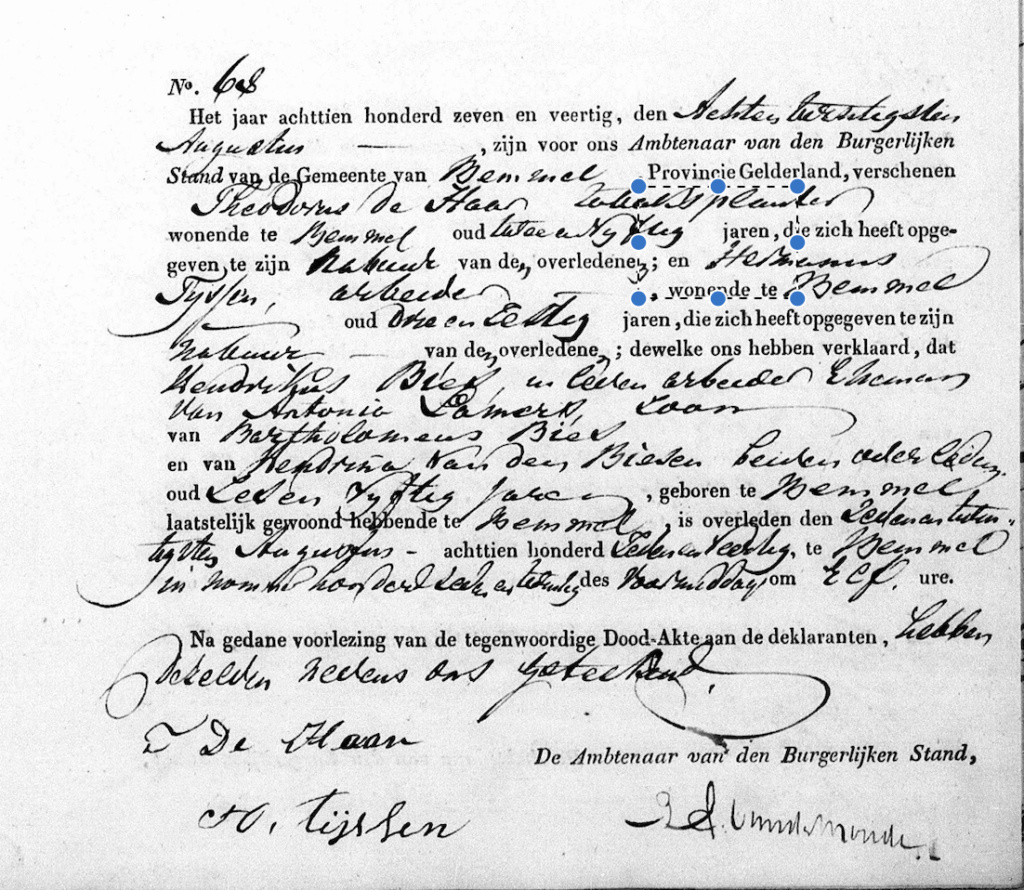 No. 68
Het jaar achttien honderd zeven en veertig, den Achtentwintigsten
Augustus , zijn voor ons Ambtenaar van den Burgerlijken
Stand van de Gemeente van Bemmel Provincie Gelderland, verschenen
Theodorus de Haan tabaksplanter
wonende te Bemmel oud twee en Vyftig jaren, die zich heeft opge-
geven te zijn Nabuur van den overledenen; en Hermanus
Tyssen, arbeider , wonende te Bemmel
oud drie en Sestig jaren, die zich heeft opgegeven te zijn
nabuur van den overledenen; dewelke ons hebben verklaard, dat
Hendrikus Bies, in leven arbeider Eheman
Van Antonia Lamers, Zoon
van Bartholomeus Bies
en van Hendrina Van den Biesen beiden overleden
oud Zesen Vyftig Jaren , geboren te Bemmel
laatstelijk gewoond hebbende te Bemmel , is overleden den Zevenentwin-
tigsten Augustus - achttien honderd Zevenenveertig, te Bemmel
in nommer honderd des Voormiddag om Elf. ure.
Na gedane voorlezing van de tegenwoordige Dood-Akte aan de deklaranten, hebben
dezelden nevens ons Geteekend.
T De Haan
De Ambtenaar van den Burgerlijken Stand,
H. Tijssen